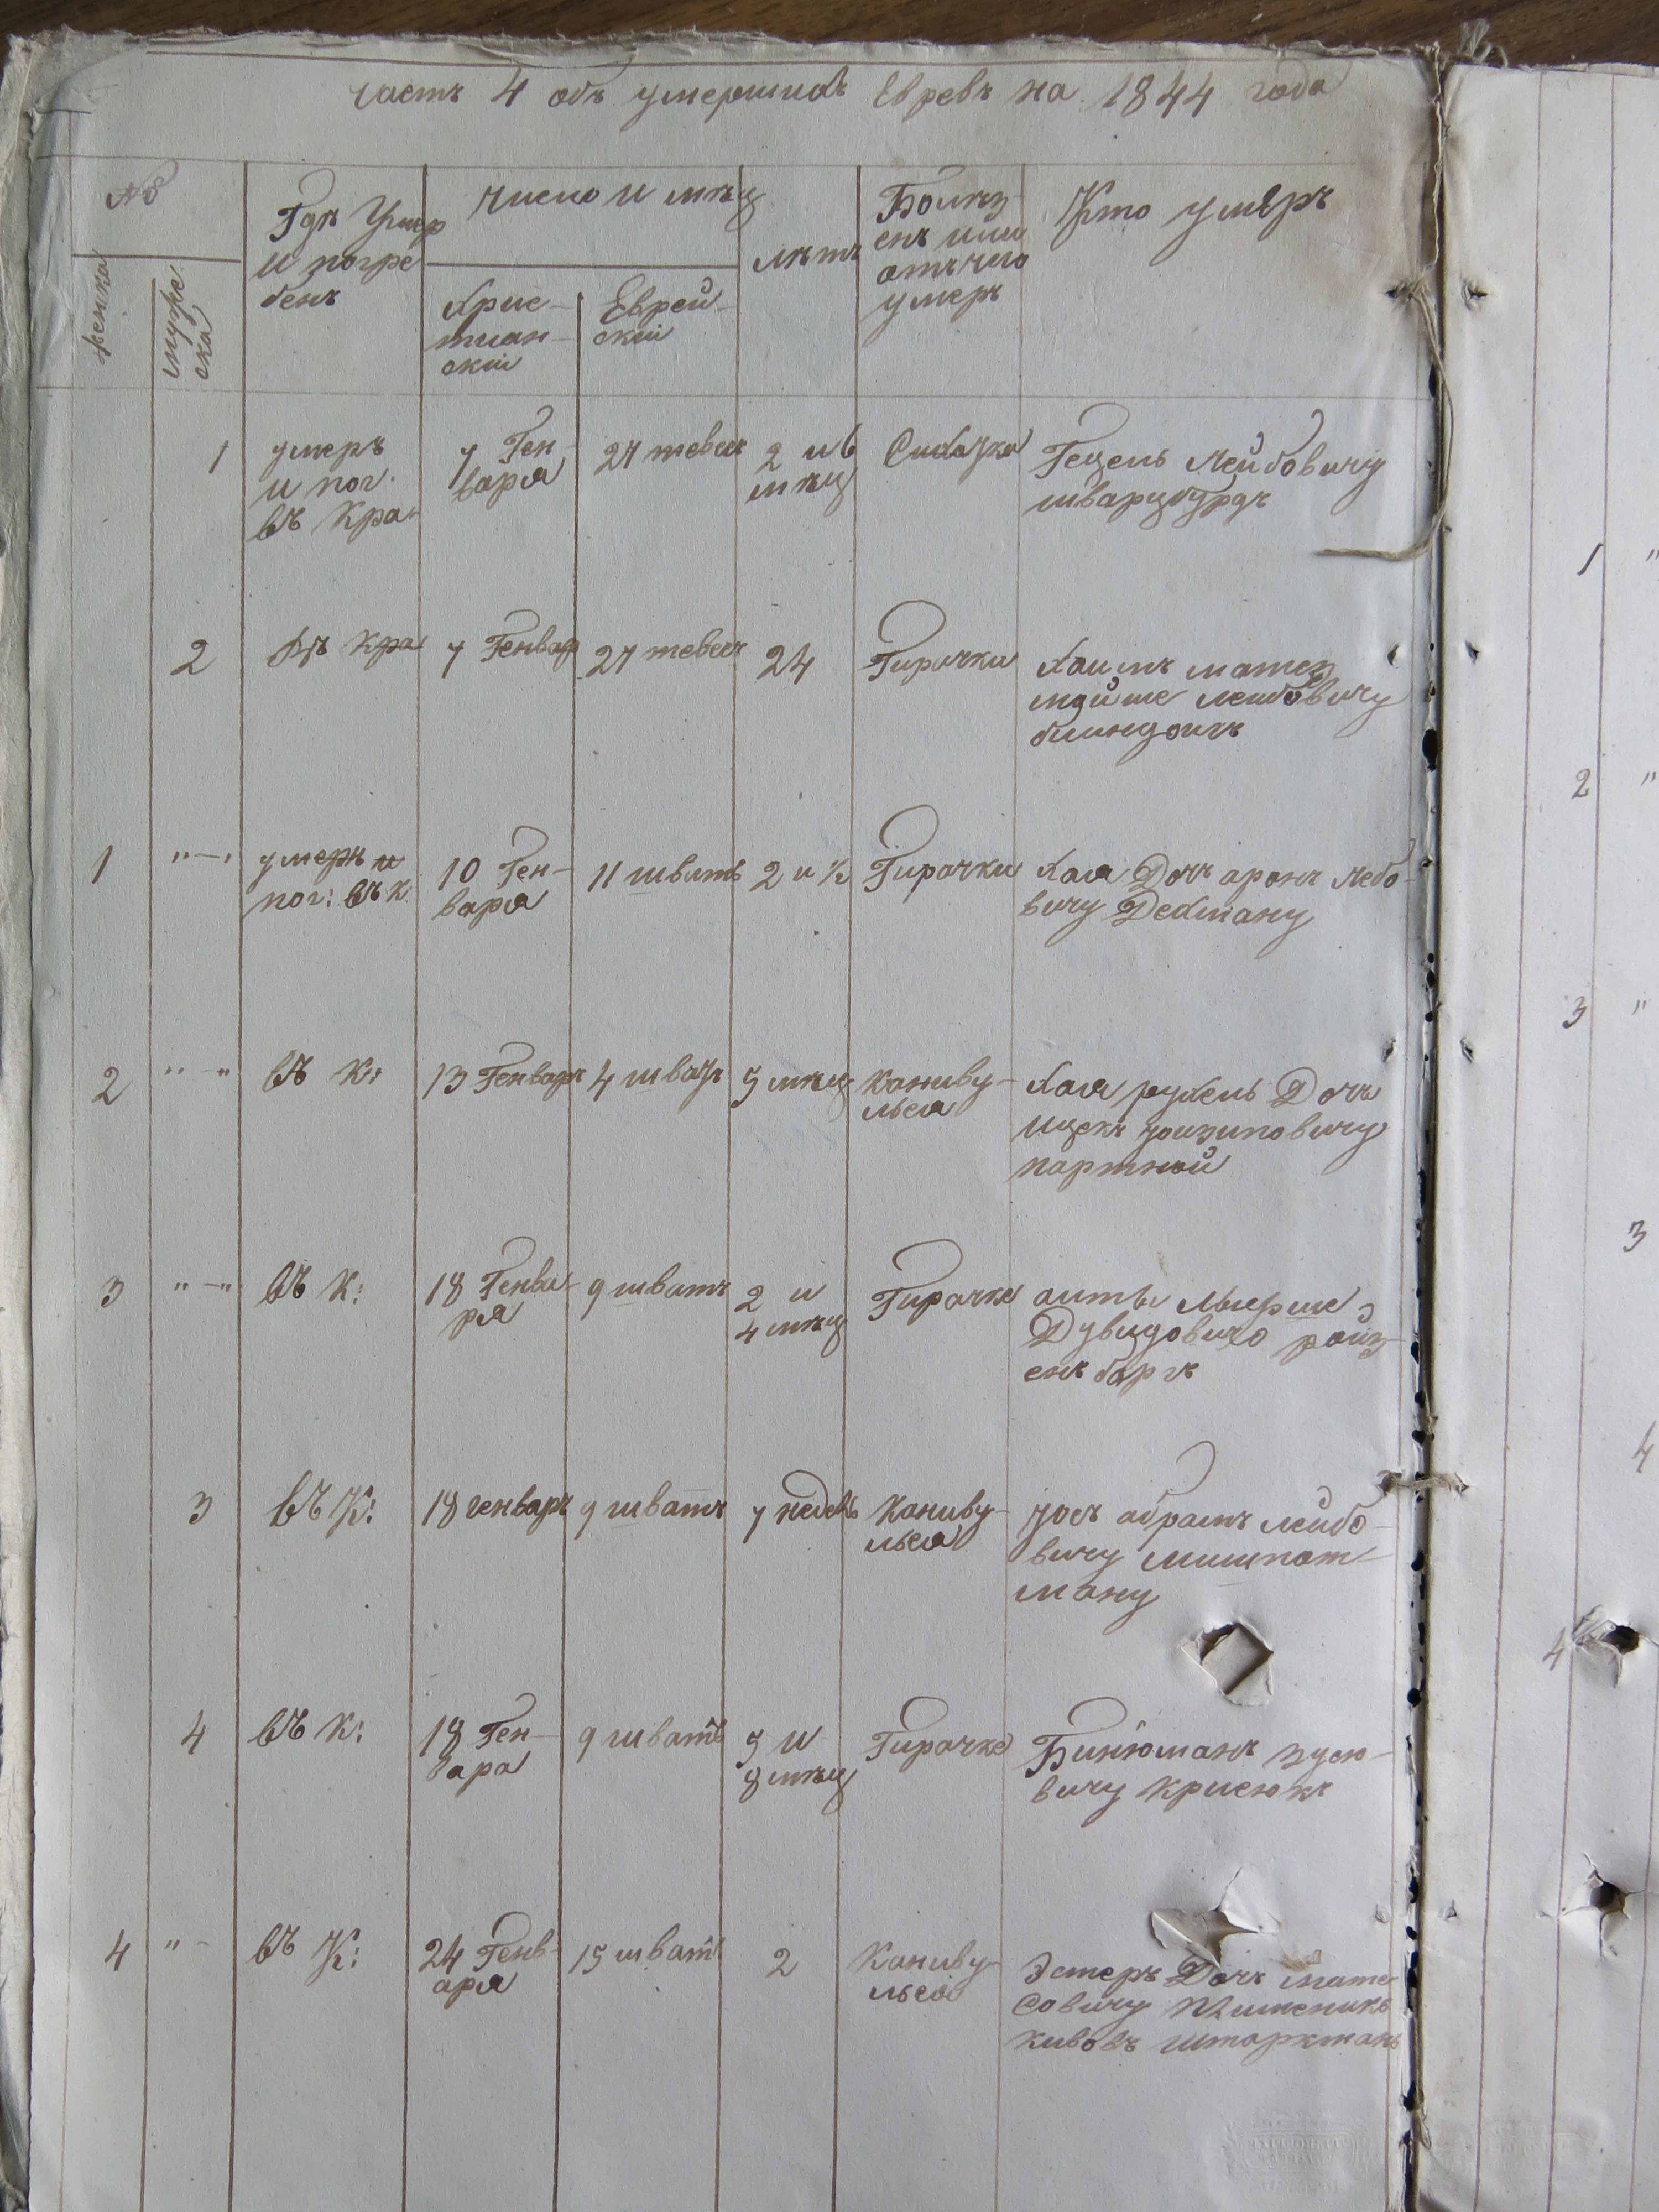 часть 4 объ умершихъ Евревъ на 1844 года
№
женска
мужес
ска
Гдѣ Умер
и погре
бенъ
Число и мѣц
Хрис-
тиан-
скій
Еврей-
скій
лѣтъ
Болѣз-
енъ или
отъ чего
умеръ
Кто умеръ
1
умеръ
и пог.
въ Кра:
7 Ген-
варя
27 тевесъ
2 и 6
мѣц
Сихачка
Гецель Лейбовичу
шварцбурдъ
2
въ Кра
7 Генвар
27 тевесъ
24
Гирачки
Хаимъ
мойше лейбовичу
блиндоихъ
1 "—"
умеръ и
пог: въ К:
10 Ген-
варя
11 шватъ
2 и ½
Гирачки
Хая Дочъ аронъ Лебо-
вичу Дехману
2 "—"
въ К:
13 Генваръ
4 шватъ
5 мѣц
Канвву-
лься
Хая рухель Дочъ
ицекъ
партной
3 "—"
въ К:
18 Генва-
ря
9 шватъ
2 и
4 мѣц
Гирачке
Дувидовичо ройз-
енъ баргъ
3
въ К:
18 генваръ
9 шватъ
7 недель
Канвву-
льса
абрамъ лейбо-
вичу
ману
4
въ К:
18 Ген-
варя
9 шватъ
5 и
8 мѣц
Гирачке
Бинюманъ зусю-
вичу крисюкъ
4 " -
въ К:
24 Генв-
аря
15 шватъ
2
Канвву-
льсо
Эстеръ Дочъ мате
совичу
кивовъ Штаркманъ
1 "
2 "
3 "
3
4
4